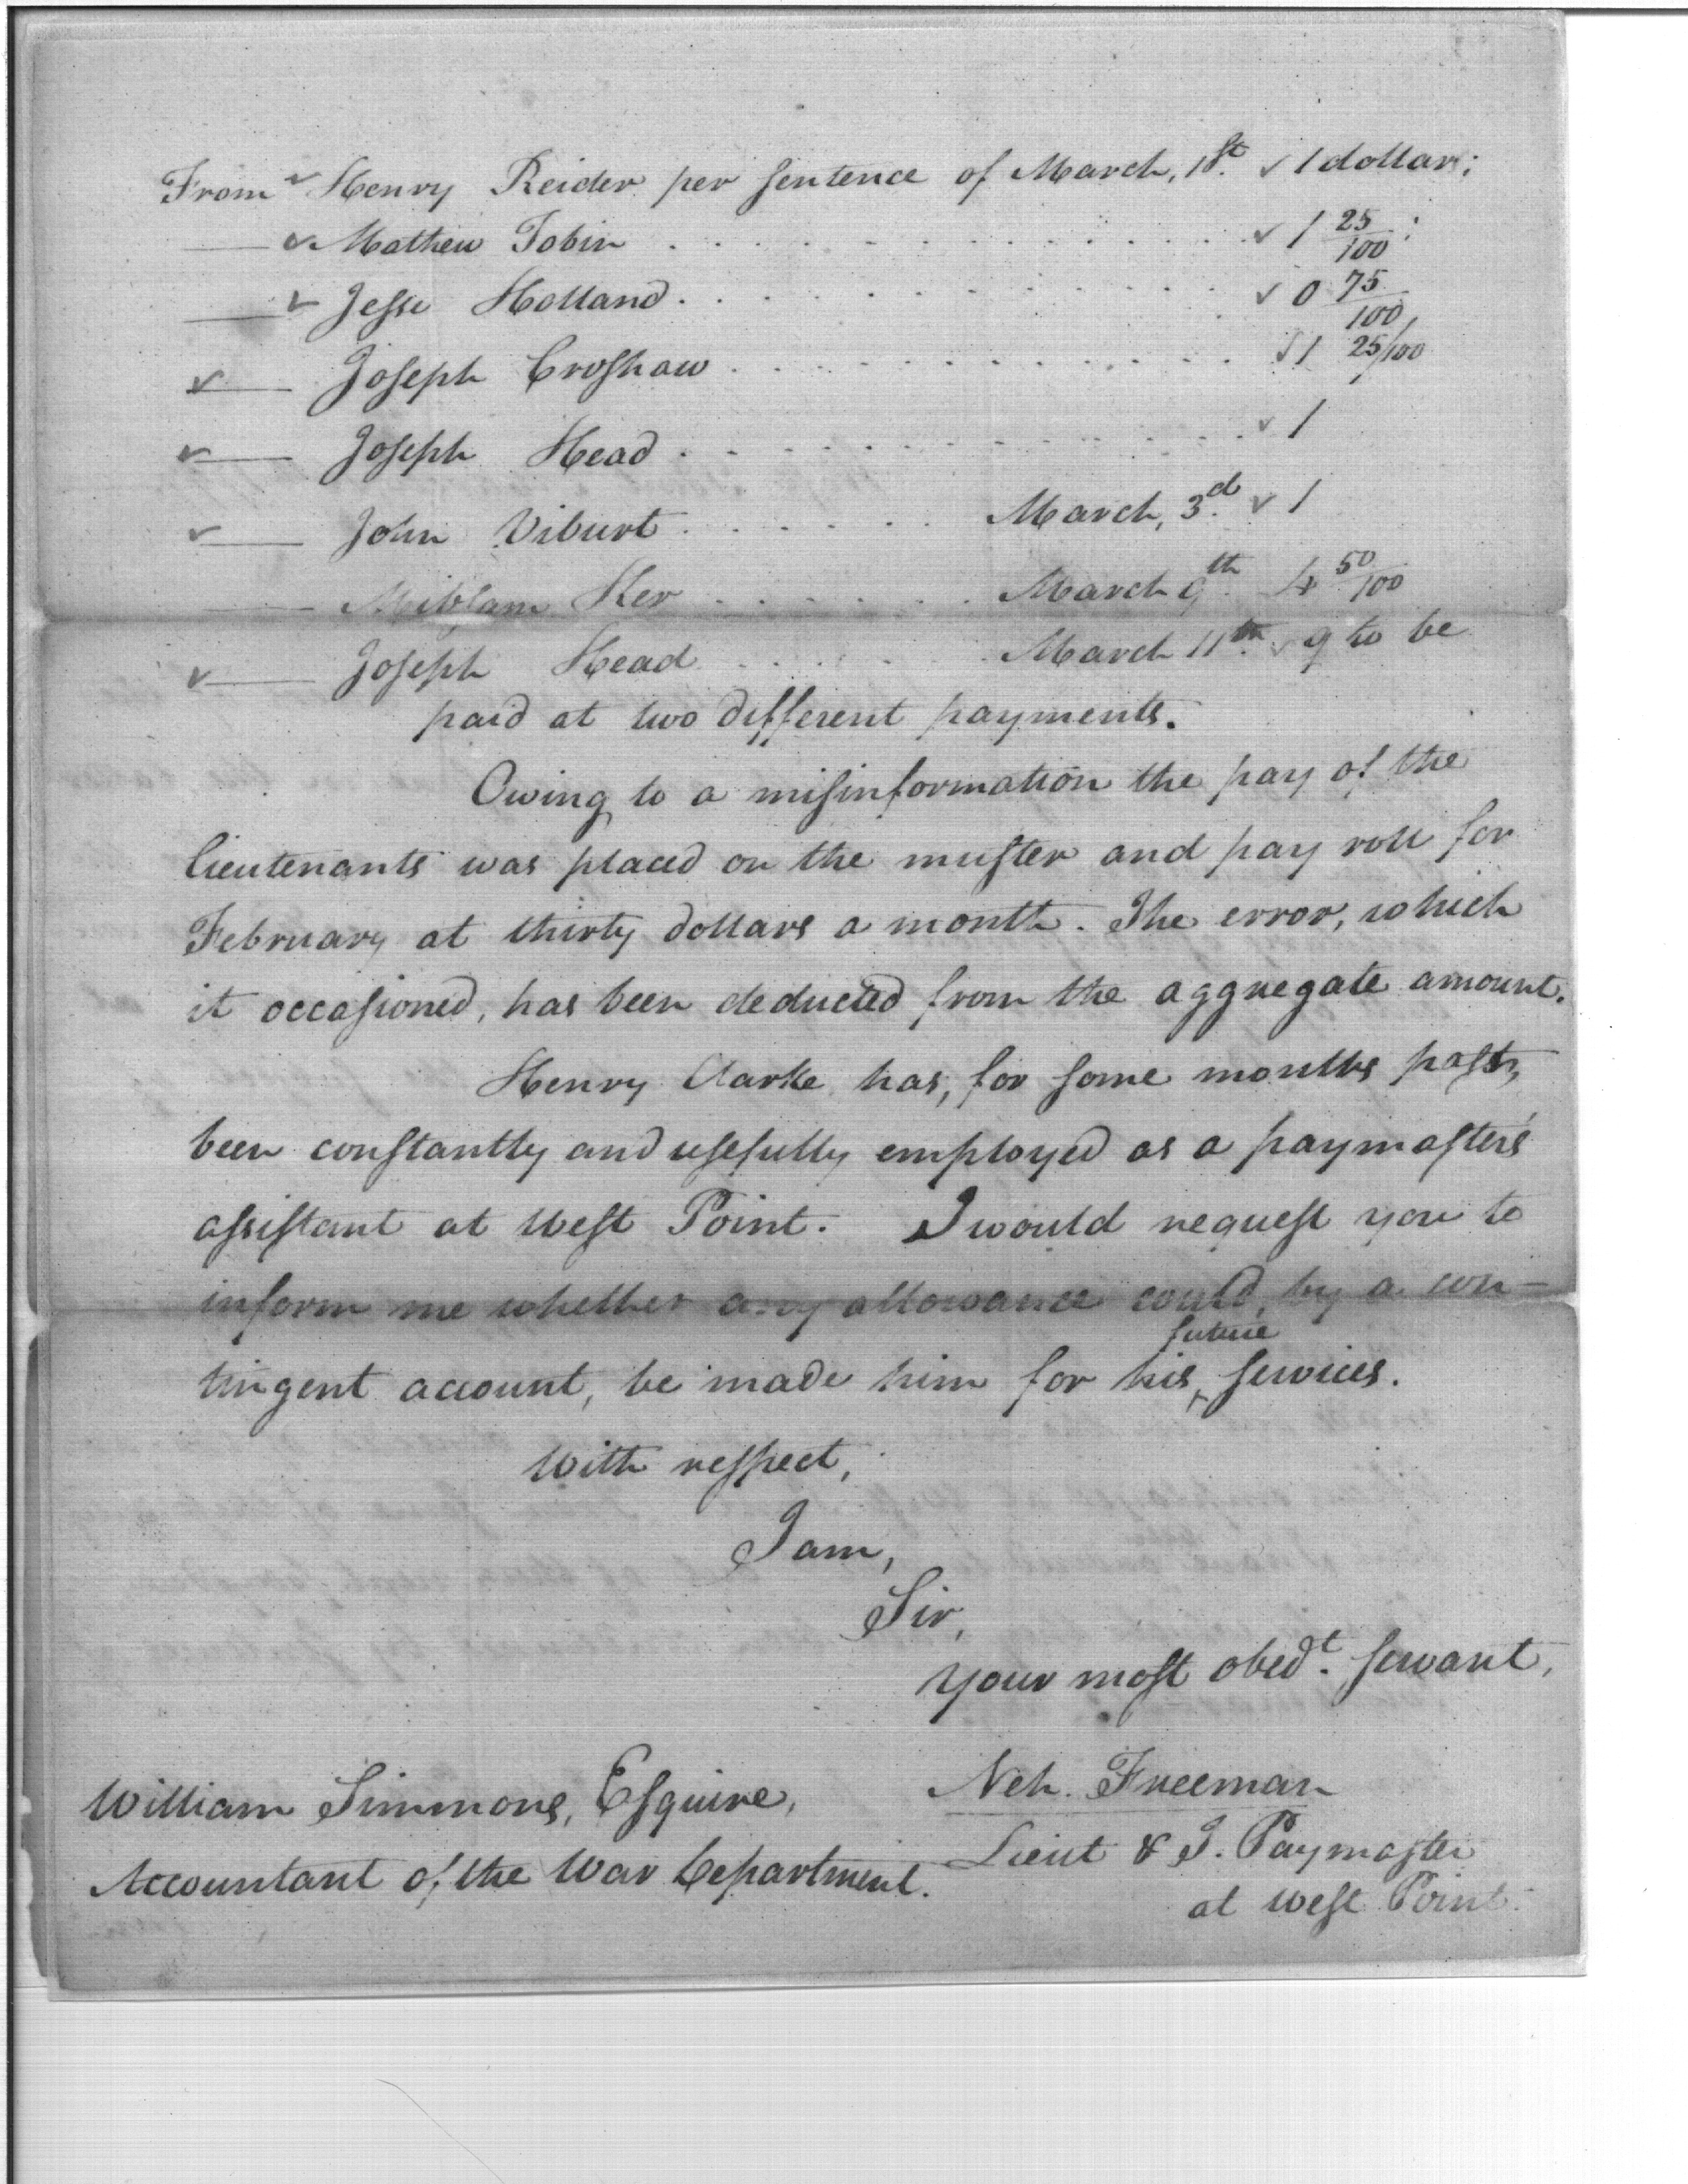 From ✓ Henry Reider per sentence of March, 1st. ✓ 1 dollar;
— ✓ Mathew Tobin . . . . . . . . . . . . . . ✓ 1 25/100;
— ✓ Jesse Holland . . . . . . . . . . . . . . ✓ 0 75/100,
✓ — Joseph Croshaw . . . . . . . . . . . . ✓ 1 25/100
✓ — Joseph Head . . . . . . . . . . . . ✓ 1
✓ — John Viburt . . . . . . March, 3d. ✓ 1
— Ker . . . . . . March 9th. 4 50/100
✓ — Joseph Head . . . . . . March 11th. ✓ 9 to be
paid at two different payments.
Owing to a misinformation the pay of the
lieutenants was placed on the muster and pay roll for
February at thirty dollars a month. The error, which
it occasioned, has been deducted from the aggregate amount.
Henry Clarke has, for some months past,
been constantly and usefully employed as a paymaster's
assistant at West Point. I would request you to
inform me whether any allowance could, by a con-
tingent account, be made him for his future services.
With respect,
I am,
Sir,
Your most obedt. servant,
Neh. Freeman
Lieut & T. Paymaster
at West Point.
William Simmons, Esquire,
Accountant of the War Department.